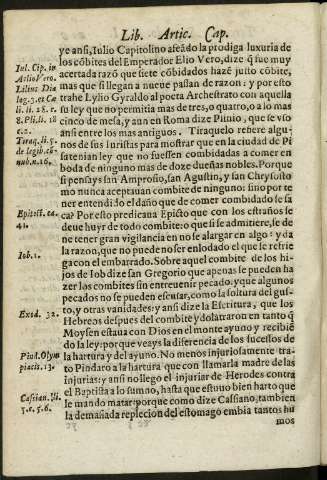 Lib. Artic. Cap.
ye ansi, Iulio Capitolino afeãdo la prodiga luxuria de
los cõbites del Emperador Elio Vero, dize q̃ fue muy
acertada razõ que siete cõbidados hazẽ justo cõbite,
mas que si llegan a nueue passan de razon: y por esto
trahe Lylio Gyraldo al poeta Archestrato con aquella
su ley que no permitia mas de tres, o quatro, o a lo mas
cinco de mesa, y aun en Roma dize Plinio, que se vso
ansi entre los mas antiguos. Tiraquelo refiere algu-
nos de sus Iuristas para mostrar que en la ciudad de Pi
satenian ley que no fuessen combidadas a comer en
boda de ninguno mas de doze dueñas nobles. Porque
si pensays san Ambrosio, san Agustin, y san Chrysosto
mo nunca aceptauan combite de ninguno: sino por te
ner entendido el daño que de comer combidado se sa
ca? Por esto predicaua Epicto que con los estraños se
deue huyr de todo combite: o que si se admitiere, se de
ue tener gran vigilancia en no se alargar en algo: y da
la razon, que no puede no ser enlodado el que le refrie
ga con el embarrado. Sobre aquel combite de los hi-
jos de Iob dize san Gregorio que apenas se pueden ha
zer los combites sin entreuenir pecado: y que algunos
pecados no se pueden escusar, como la soltura del gus-
to, y otras vanidades: y ansi dize la Escritura, que los
Hebreos despues del combite ydolatraron en tanto q̃
Moysen estaua con Dios en el monte ayuno y recibiẽ
do la ley: por que veays la diferencia de los sucessos de
la hartura y del ayuno. No menos injuriosamente tra-
to Pindaro a la hartura que con llamarla madre de las
injurias: y ansi no llego el injuriar de Herodes contra
el Baptista a lo sumo, hasta que estuuo bien harto que
le mando matar: porque como dize Cassiano, tambien
la demasiada replecion del estomago embia tantos hu
mos
Iul. Cip. in
Aelio Vero.
Lilius Dia
log. 3. ex Cæ
li. li. 28. c.
8. Pli. li. 18
c. 2.
Tiraq. li. 5.
de legib. cõ-
nub. n. 16.
Epitect. ca.
41.
Iob. 1.
Exod. 32.
Pind. Olym
piacis. 13.
Cassian. li.
5. c. 5. 6.